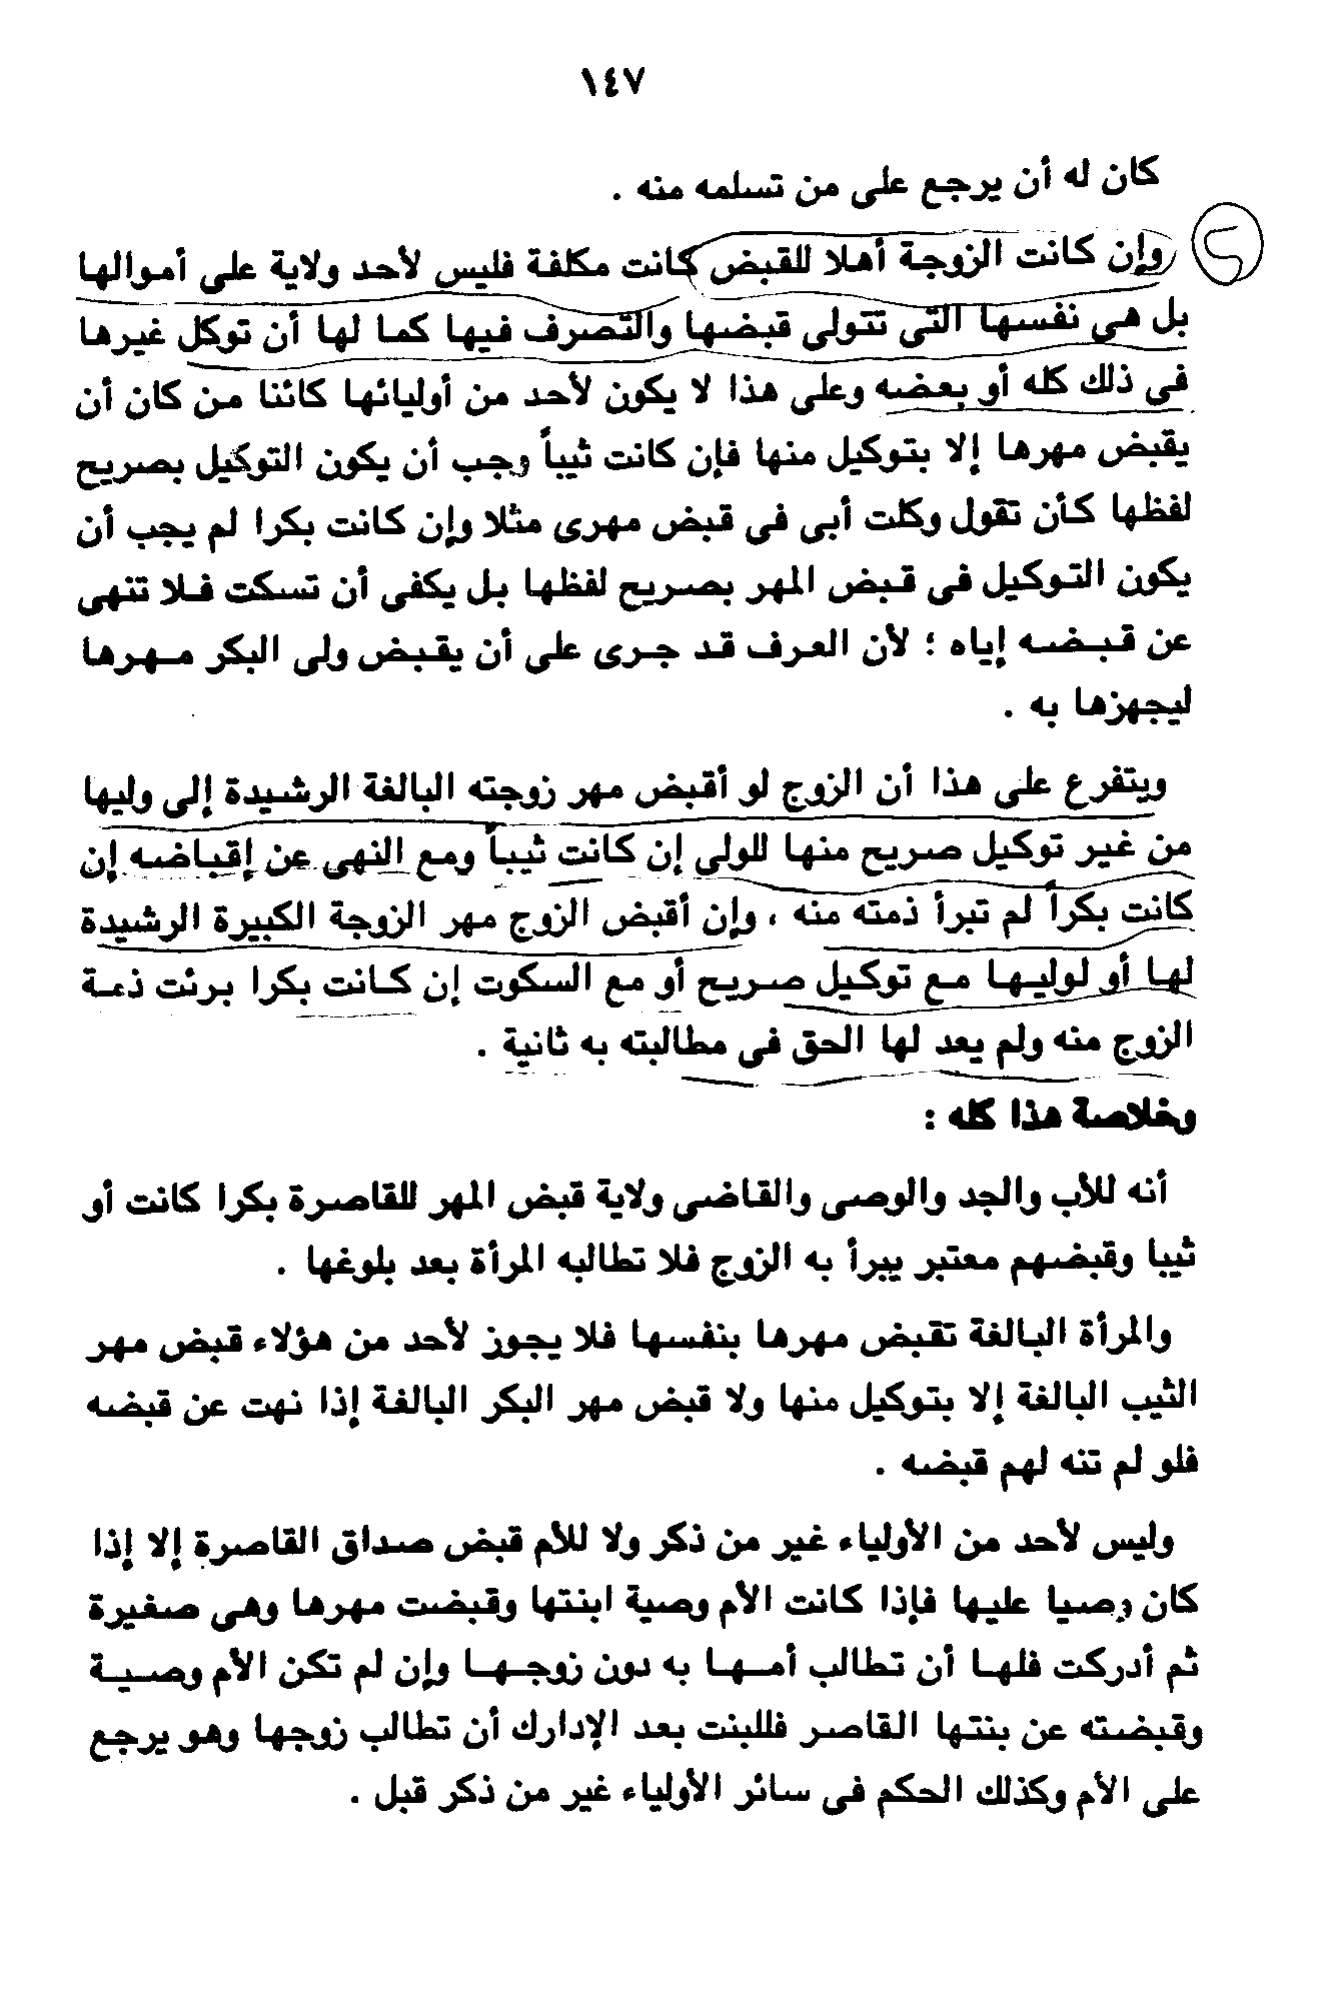 ١٤٧
كان له أن يرجع على من تسلمه منه .
وإن كانت الزوجة أهلا للقبض كانت مكلفة فليس لأحد ولاية على أموالها
بل هى نفسها التى تتولى قبضها والتصرف فيها كما لها أن توكل غيرها
فى ذلك كله أو بعضه وعلى هذا لا يكون لأحد من أوليائها كائنا من كان أن
يقبض مهرها إلا بتوكيل منها فإن كانت ثيباً وجب أن يكون التوكيل بصريح
لفظها كأن تقول وكلت أبى فى قبض مهرى مثلا وإن كانت بكرا لم يجب أن
يكون التوكيل فى قبض المهر بصريح لفظها بل يكفى أن تسكت فلا تنهى
عن قبضه إياه ؛ لأن العرف قد جرى على أن يقبض ولى البكر مهرها
ليجهزها به .
ويتفرع على هذا أن الزوج لو أقبض مهر زوجته البالغة الرشيدة إلى وليها
من غير توكيل صريح منها للولى إن كانت ثيباً ومع النهى عن إقباضه إن
كانت بكراً لم تبرأ ذمته منه ، وإن أقبض الزوج مهر الزوجة الكبيرة الرشيدة
لها أو لوليها مع توكيل صريح أو مع السكوت إن كانت بكرا برئت ذمة
الزوج منه ولم يعد لها الحق فى مطالبته به ثانية .
وخلاصة هذا كله :
أنه للأب والجد والوصى والقاضى ولاية قبض المهر للقاصرة بكرا كانت أو
ثيبا وقبضهم معتبر يبرأ به الزوج فلا تطالبه المرأة بعد بلوغها .
والمرأة البالغة تقبض مهرها بنفسها فلا يجوز لأحد من هؤلاء قبض مهر
الثيب البالغة إلا بتوكيل منها ولا قبض مهر البكر البالغة إذا نهت عن قبضه
فلو لم تنه لهم قبضه .
وليس لأحد من الأولياء غير من ذكر ولا للأم قبض صداق القاصرة إلا إذا
كان وصيا عليها فإذا كانت الأم وصية ابنتها وقبضت مهرها وهى صغيرة
ثم أدركت فلها أن تطالب أمها به دون زوجها وإن لم تكن الأم وصية
وقبضته عن بنتها القاصر فللبنت بعد الإدارك أن تطالب زوجها وهو يرجع
على الأم وكذلك الحكم فى سائر الأولياء غير من ذكر قبل .